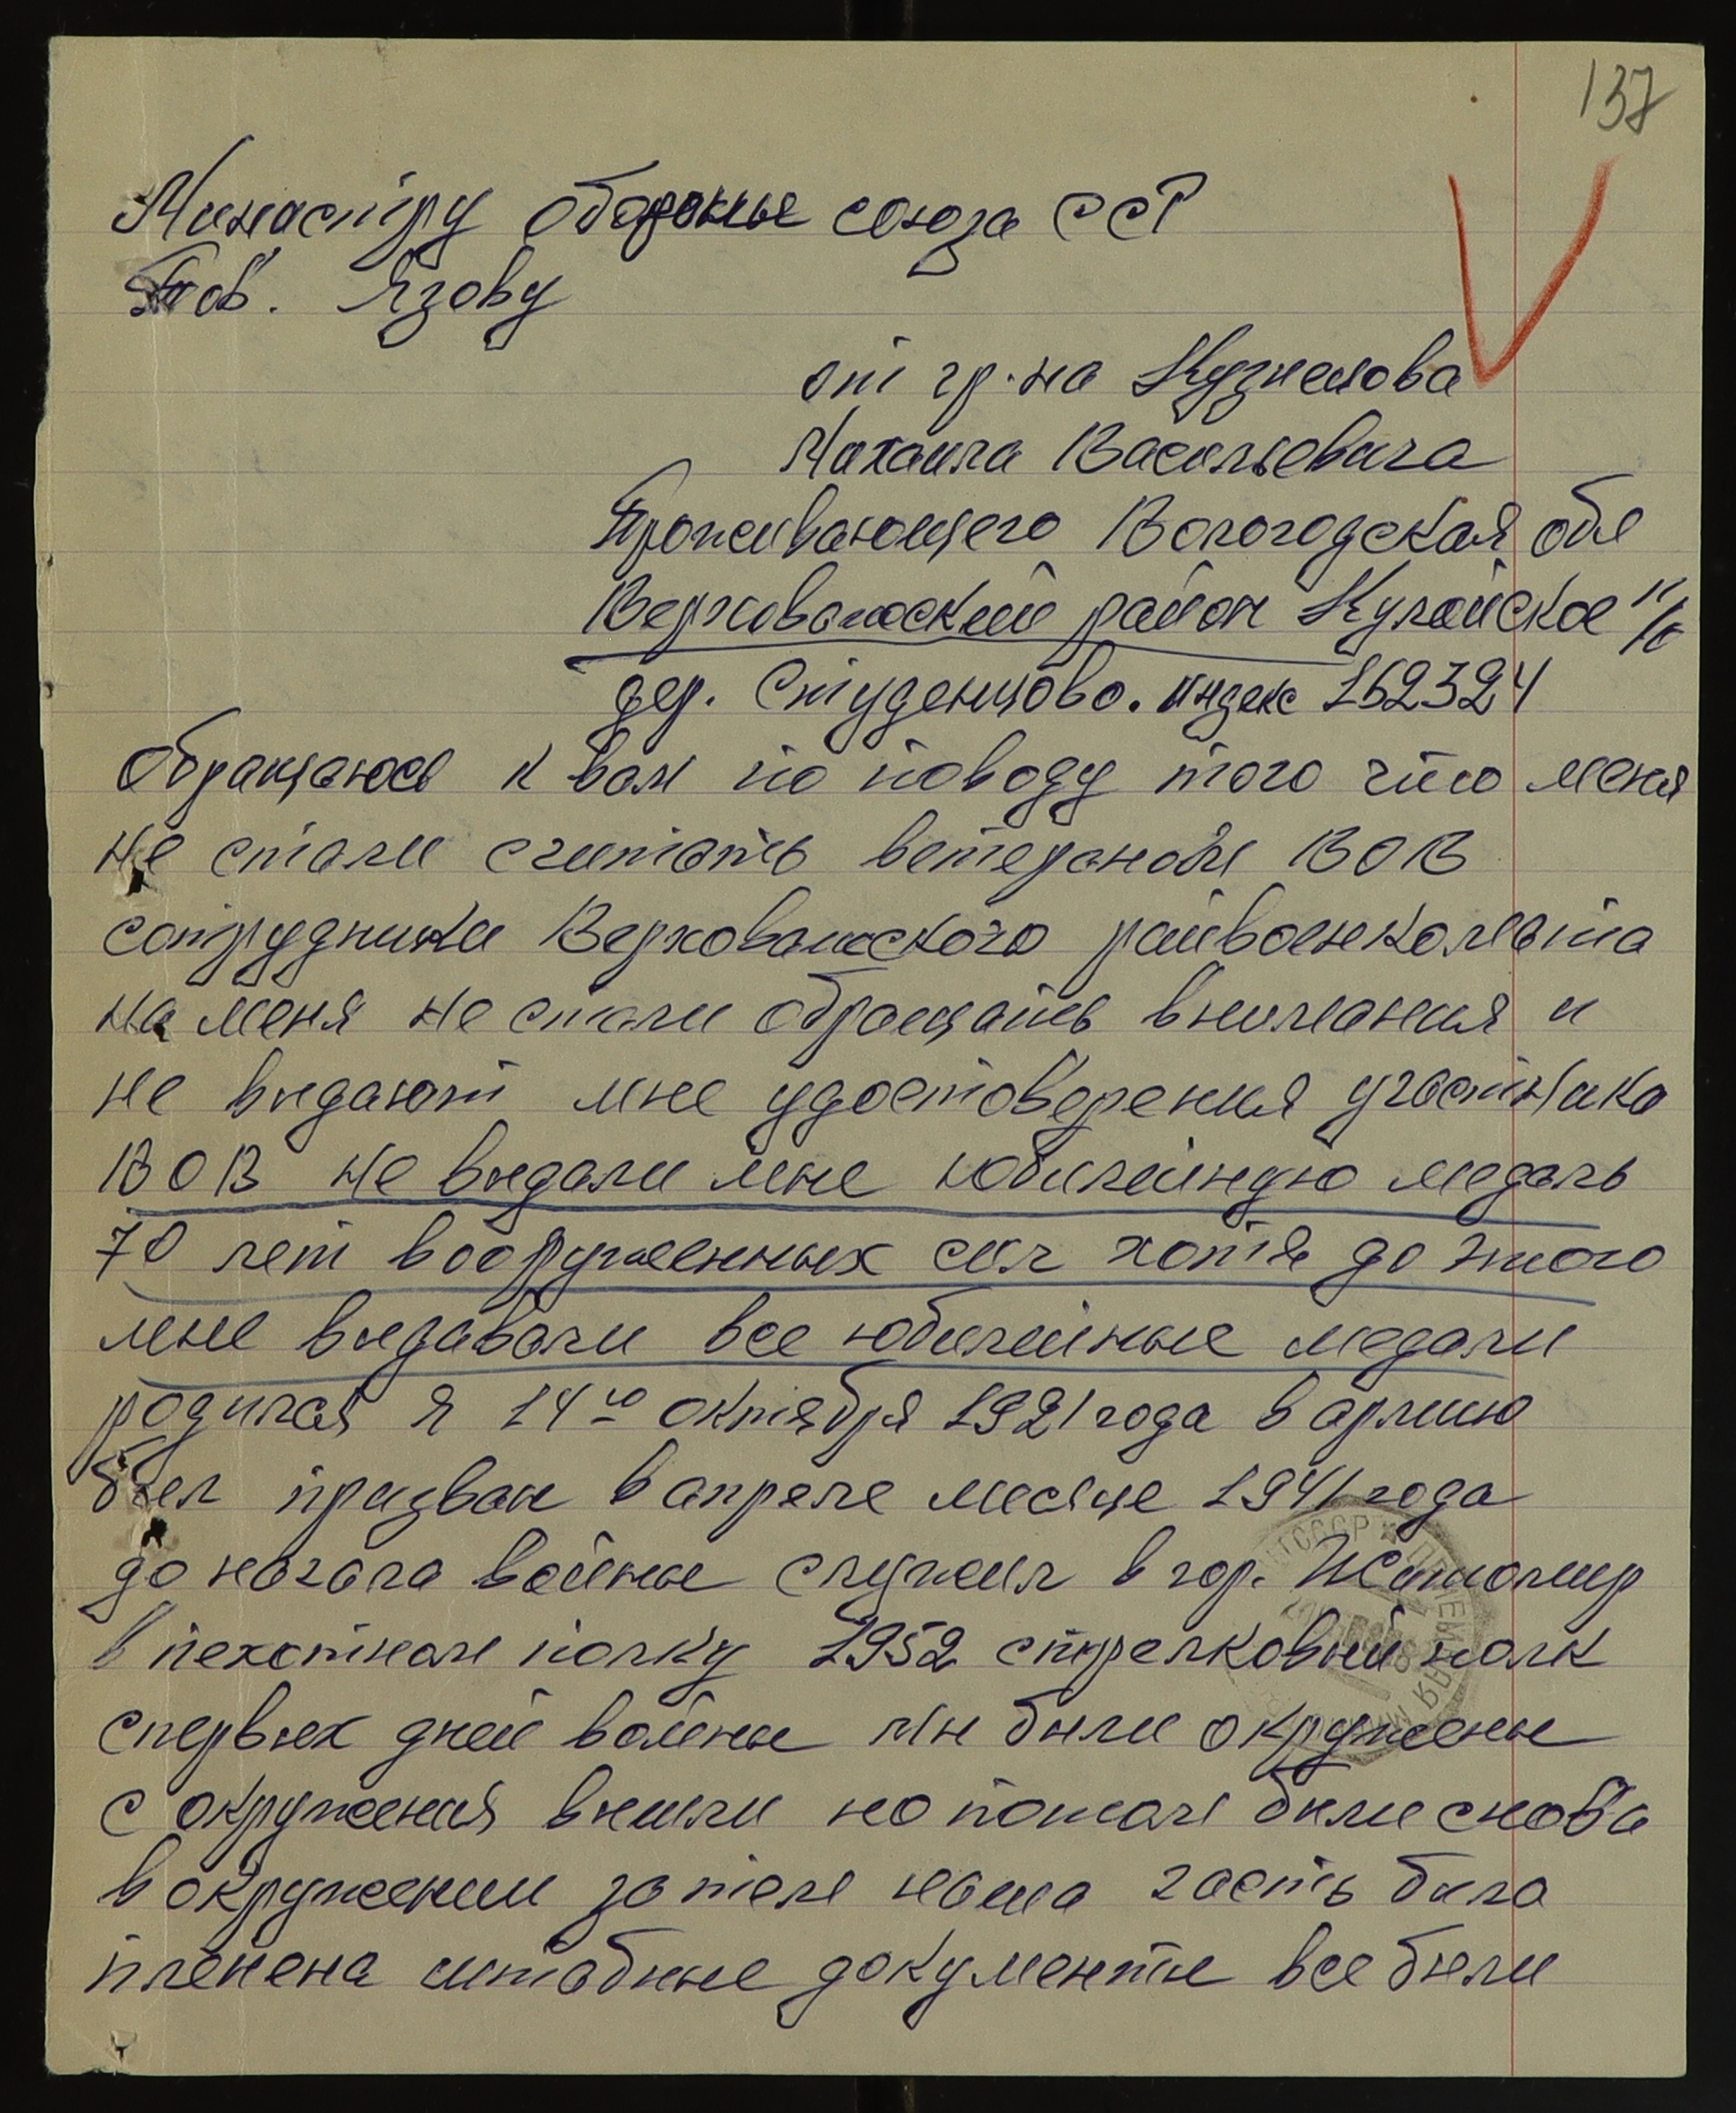 137
Минастру обороны союза ССР
Тов. Язову
от гр-на Кузнецова
Михаила Васильевича
Проживающего Вологодская обл
Верховажский район Кулойское п/о
дер. Студенцово. индекс 162324
обращаюсь к вам по поводу того что меня
не стали считать ветераном ВОВ
сотрудники Верховажского райвоенкомата
на меня не стали обращать внимания и
не выдают мне удостоверения участника
ВОВ не выдали мне юбилейную медаль
70 лет вооруженных сил хотя до этого
мне выдавали все юбилейные медали
родился я 14го октября 1921 года в армию
был призван в апреле месяце 1941 года
до начала войны служил в гор. Житомир
в пехотном полку 1952 стрелковый полк
с первых дней войны мы были окружены
с окружения вышли но потом были снова
в окружении затем наша часть была
пленена штабные документы все были